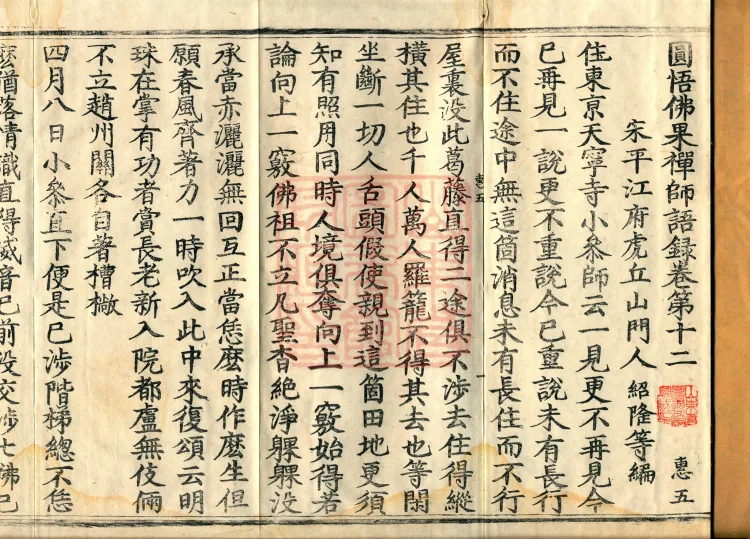 圓悟佛果禪師語録卷第十二 惠五
宋平江府虎丘山門人 紹隆等編
住東京天寧寺小參師云一見更不再見今
已再見一說更不重說今已重說未有長行
而不住途中無這箇消息未有長住而不行
惠五
屋裏没此葛藤直得二途俱不涉去住得縱
橫其住也千人萬人羅籠不得其去也等閑
坐斷一切人舌頭假使親到這箇田地更須
知有照用同時人境俱奪向上一竅始得若
論向上一竅佛祖不立凡聖杳絶淨躶躶没
承當赤灑灑無回互正當恁麽時作麽生但
願春風齊著力一時吹入此中來復頌云明
珠在掌有功者賞長老新入院都盧無伎倆
不立趙州關各自著槽櫪
四月八日小參直下便是已涉階梯總不恁
麽猶落情識直得威音已前没交涉七佛已